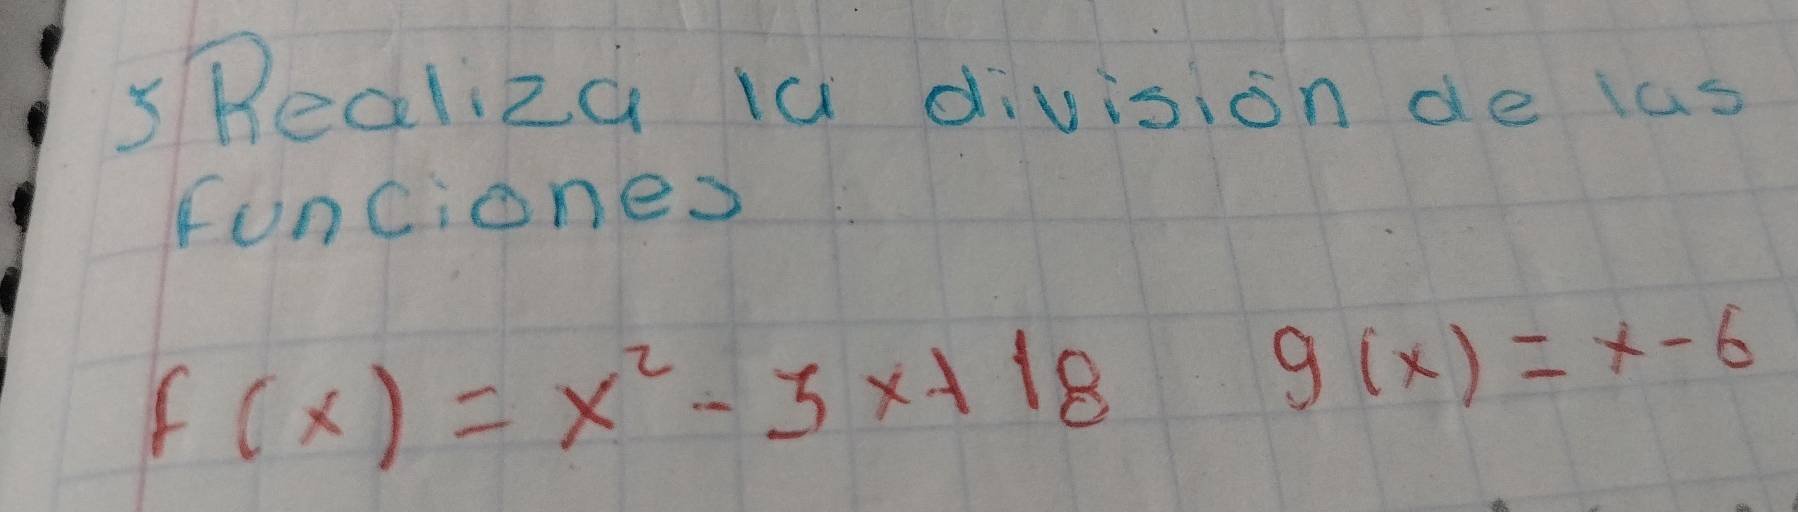 5 Realiza la división de las
funciones
f(x) = x² - 3x + 18 g(x) = x - 6